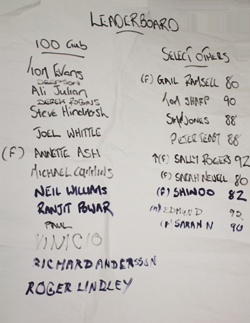 LEADERBOARD
100 Club
Tom Evans
Ali Julian
DEREK ROBINS
Steve Hindmarsh
JOEL WHITTLE
(F) ANNETTE ASH
MICHAEL
NEIL WILLIAMS
RANJIT POWAR
PAUL
VINICIO
RICHARD ANDERSSON
ROGER LINDLEY
SELECT OTHERS
(F) GAIL RAMSELL 80
TOM SHARP 90
JONES 88
PETER 88
(F) SALLY ROGERS 92
(F) SARAH NEVELL 80
(F) SHIWOO 82
EDMUND 90
(F) SARAH N 90